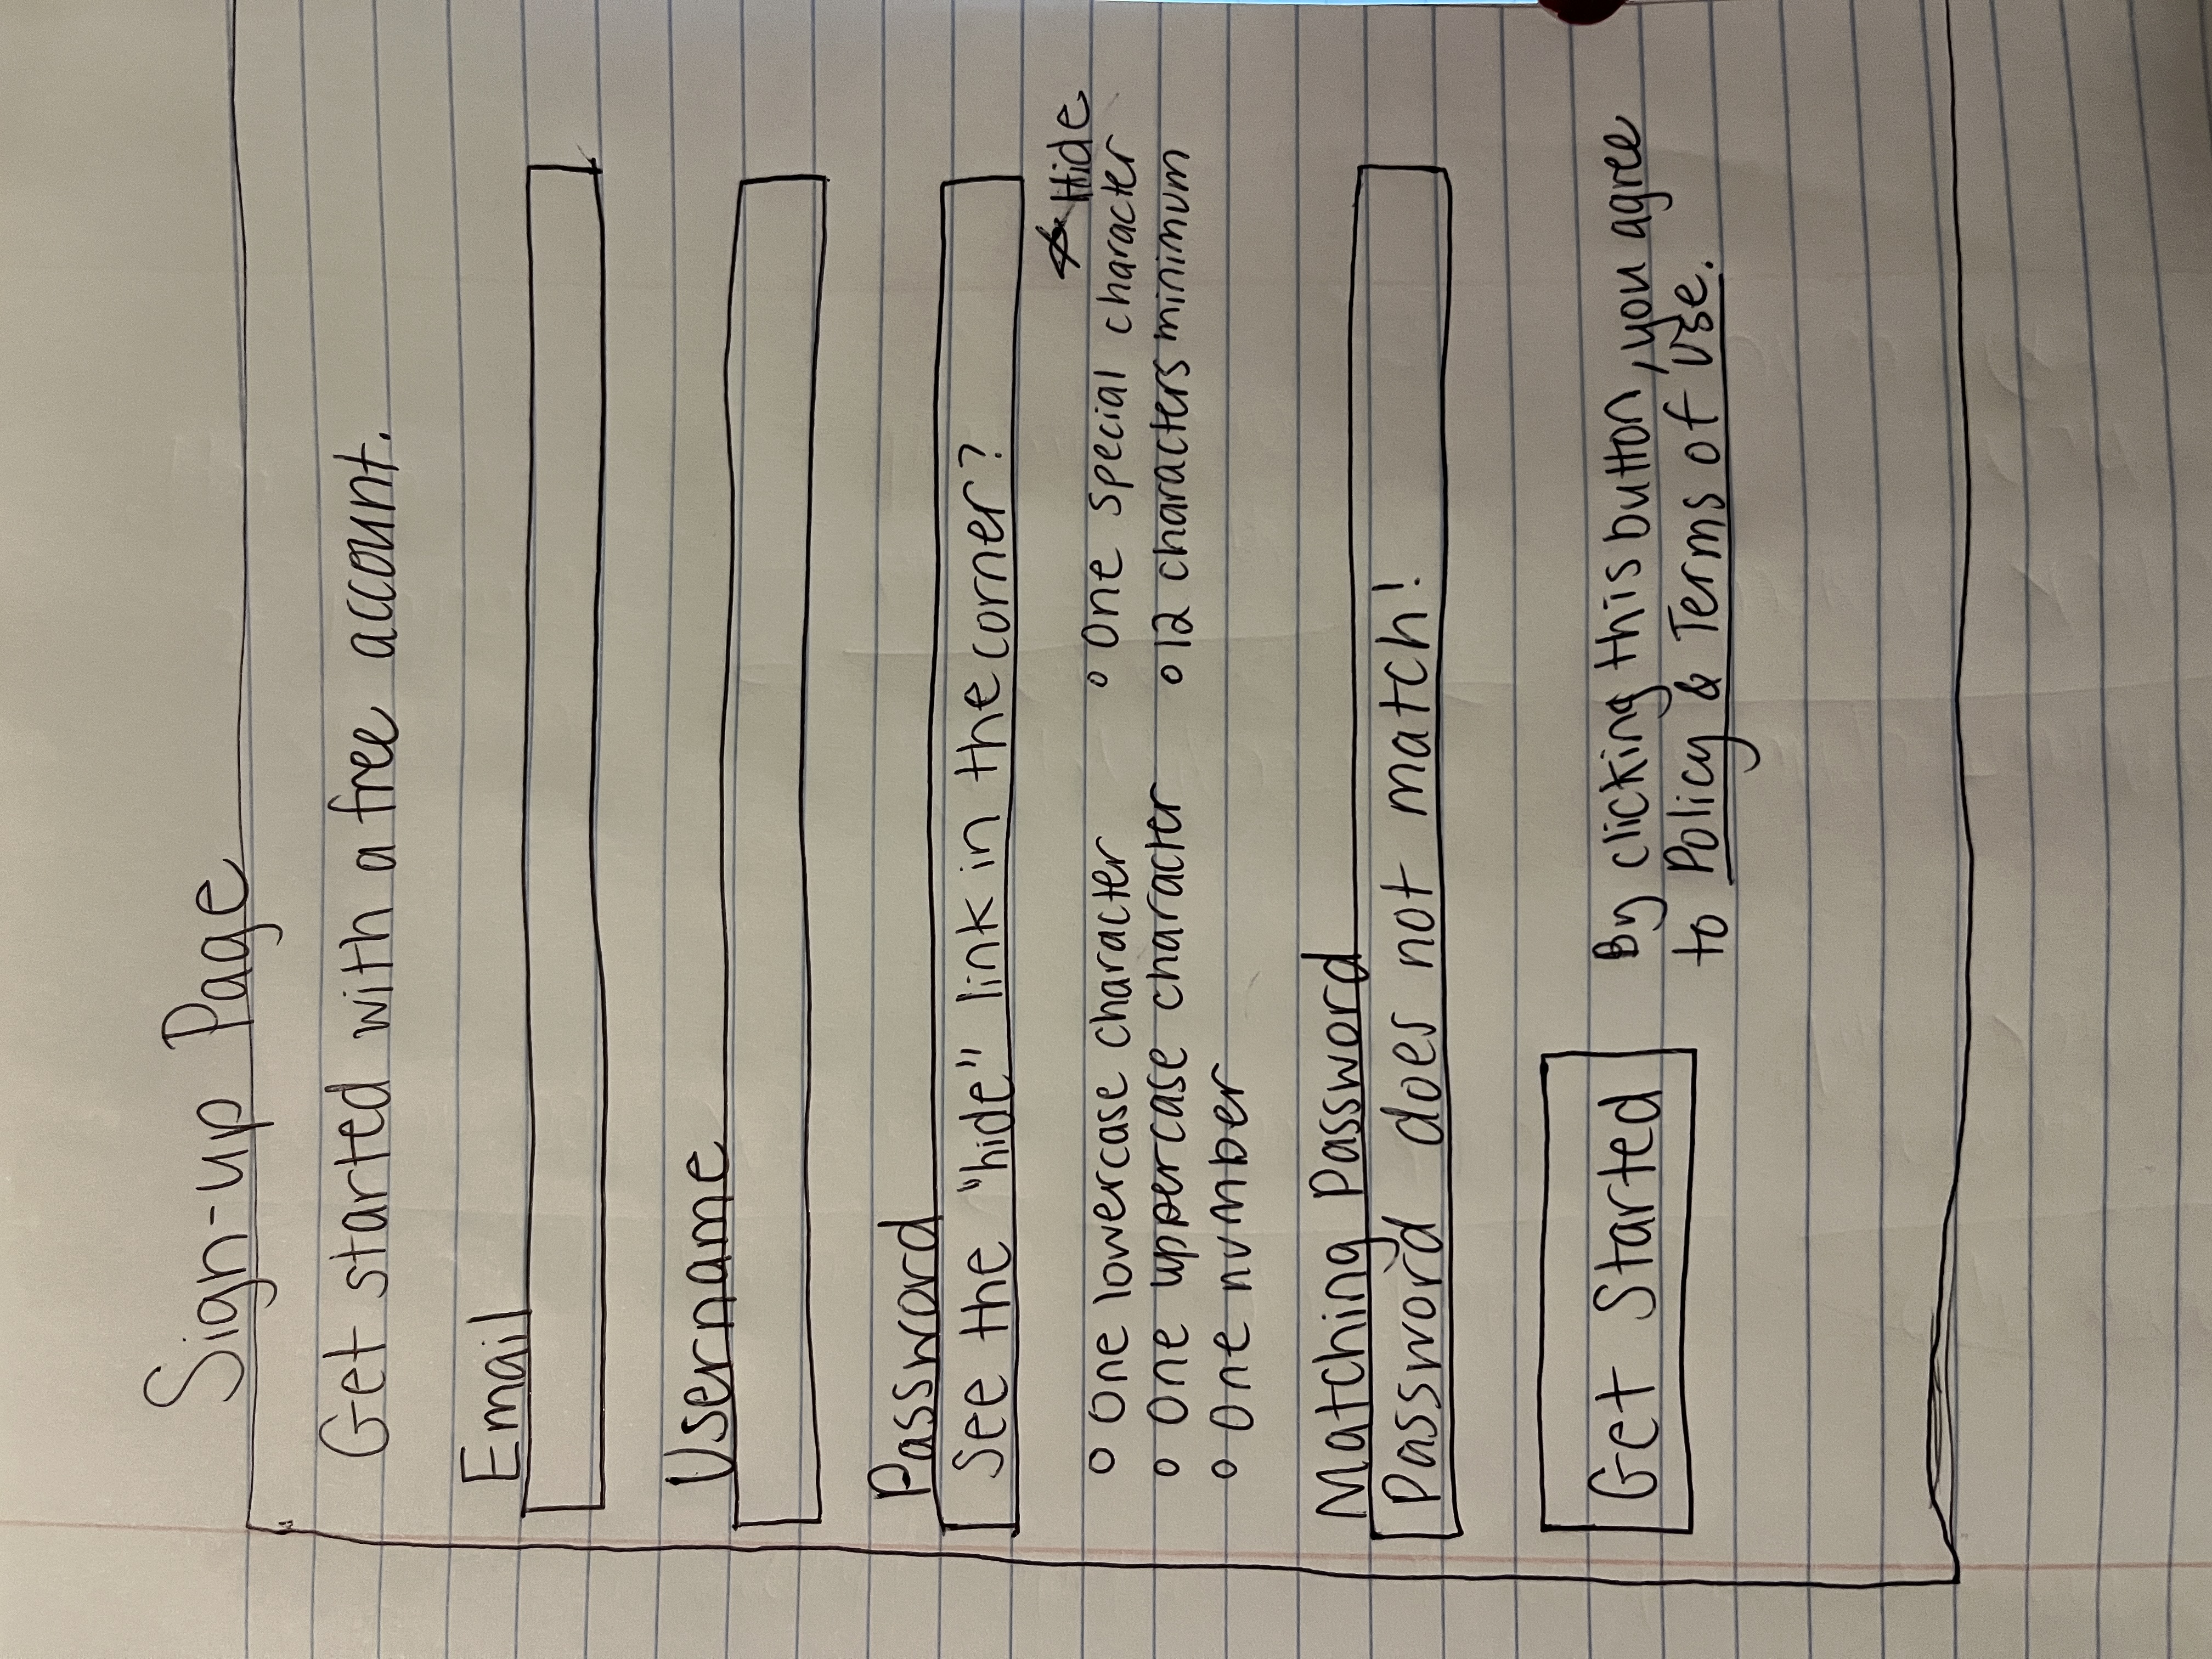 Sign-up Page
Get started with a free account.
Email
Username
Password
See the "hide" link in the corner?
Hide
o One lowercase character
o One uppercase character
o One number
o One special character
o 12 characters minimum
Matching Password
Password does not match!
Get Started
By clicking this button, you agree
to Policy & Terms of Use.